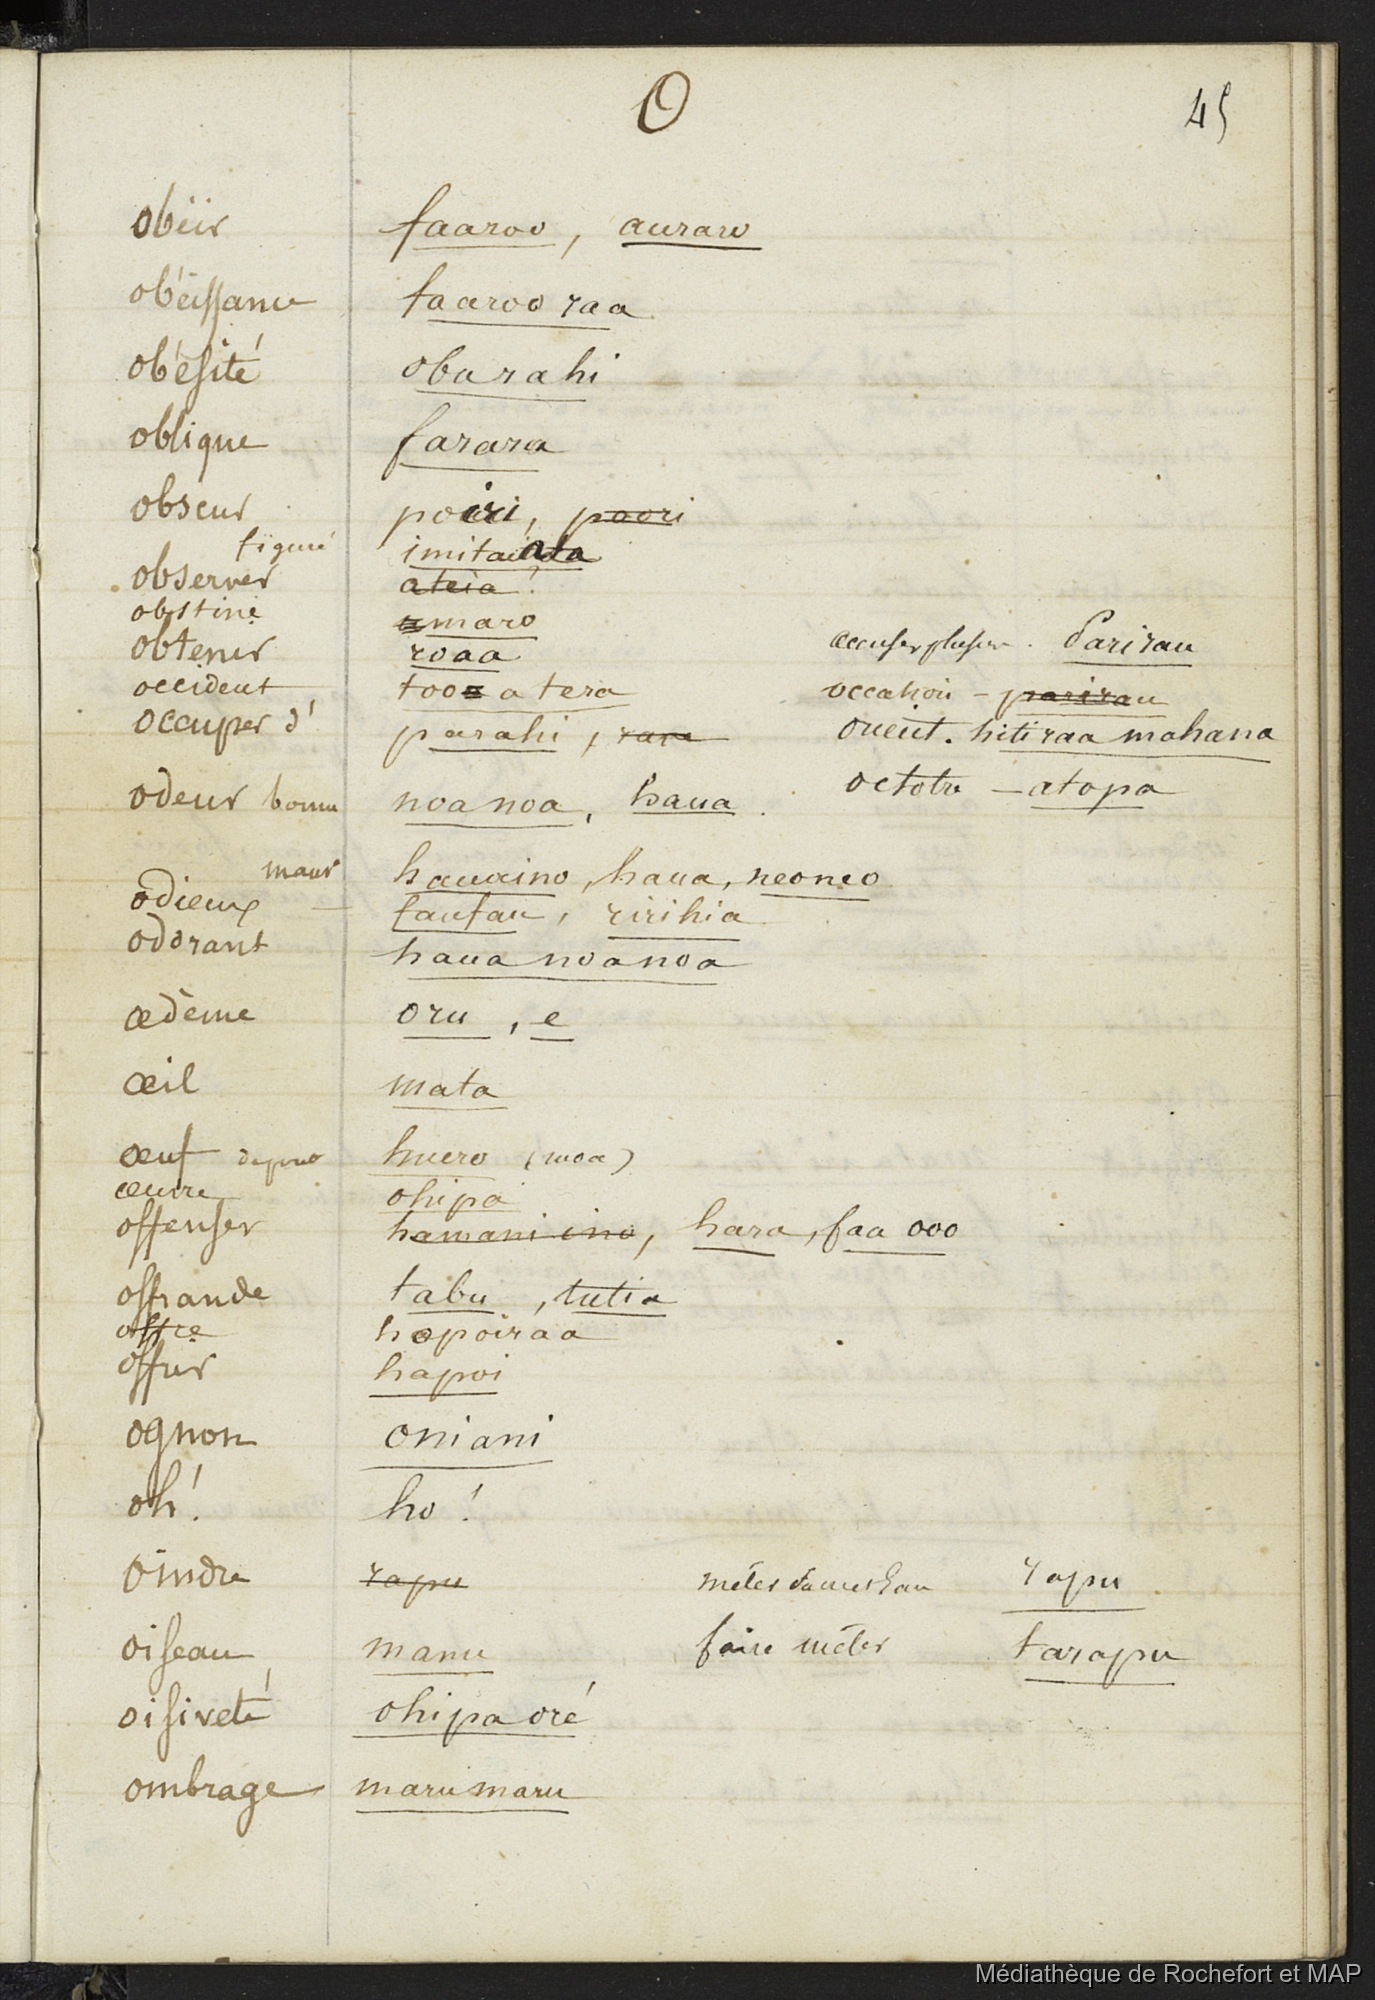 O
45
obéir faaroo, auraro
obéissance faaroo raa
obésité oburahi
oblique farara
obscur poiri, poori
figuré imitaata
observer ateia ?
obstiné maro
obtener roaa
accuser plusieurs. Parirau
occident tooa o tera
occasion - parirau
occuper d' parahi, rave
orient. hitiraa mahana
octobre - atopa
odeur bonne noa noa, haua.
mauv hauaino, haua, neoneo
odieux - faufau, ririhia
odorant haua noanoa
œdème oru, e
œil mata
œuf de poule huero (moa)
œuvre ohipa
offenser hamani ino, hara, faa ooo
offrande tabu, tutia
offre hopoiraa
offrir hapoi
ognon oniani
oh! ho!
oindre rapu
mêler dans l'eau rapu
oiseau manu
faire mêler tarapu
oisiveté ohipa oré
ombrage marumaru
Médiathèque de Rochefort et MAP